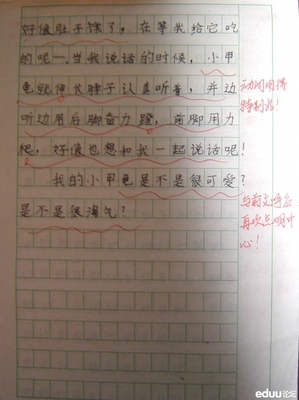 好像肚子饿了，在等我给它吃
的呢一.当我说话的时候，小甲
龟就伸长脖子认真听着，并边
听边用后脚奋力蹬，前脚用力
爬，好像也想和我一起说话呢！
我的小甲龟是不是很可爱？
是不是很淘气？
动词用得
特别
与前文呼应
再次点明中
心！
eduu论坛